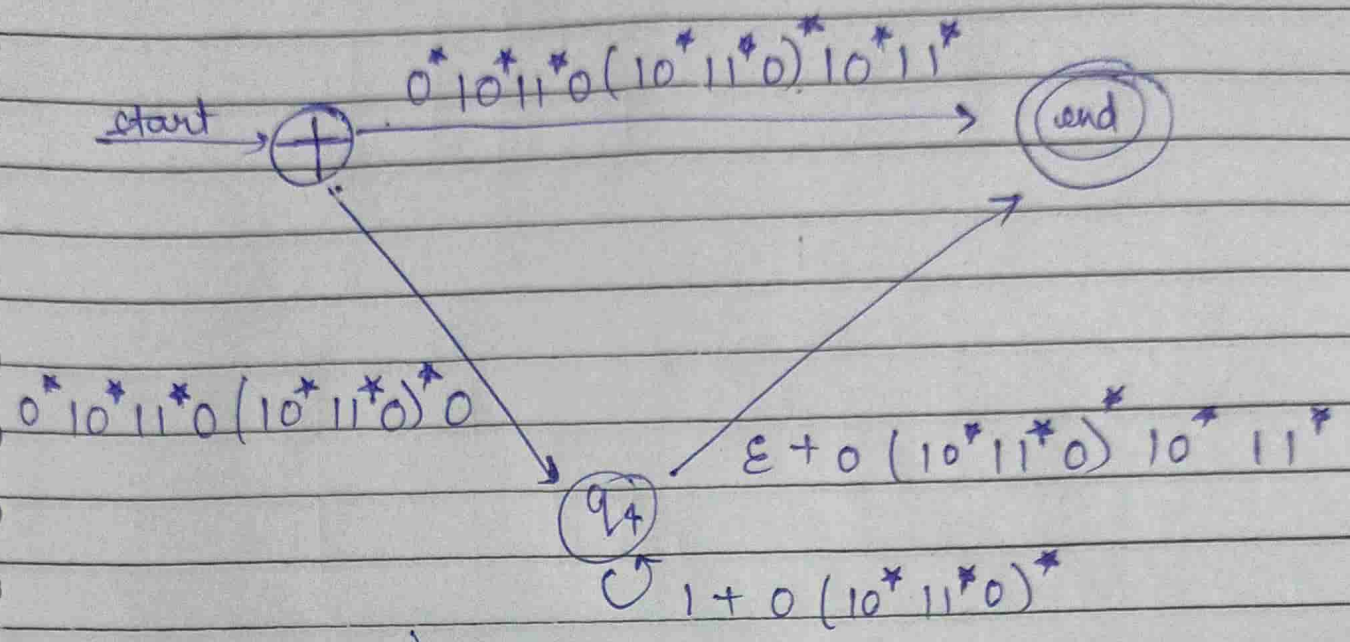 0*10*11*0(10*11*0)*10*11*
start
+
end
0*10*11*0(10*11*0)*0
ε+0(10*11*0)*10*11*
q4
1+0(10*11*0)*